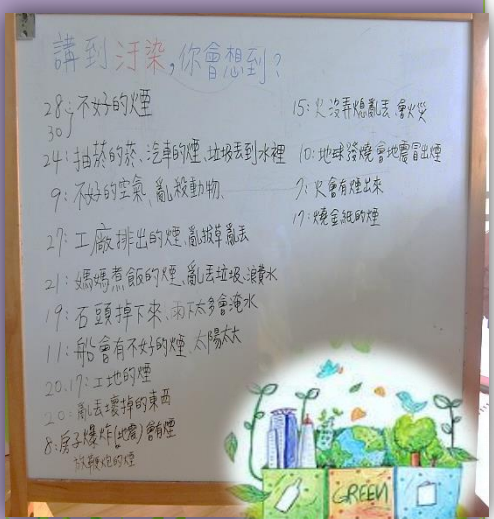 講到汙染,你會想到?
28 30:不好的煙
24:抽菸的菸、汽車的煙、垃圾丟到水裡
9:不好的空氣、亂殺動物、
27:工廠排出的煙、亂拔草亂丟
21:媽媽煮飯的煙、亂丟垃圾、浪費水
19:石頭掉下來、雨下太多會淹水
11:船會有不好的煙、太陽太大
20.17:工地的煙
20:亂丟壞掉的東西
8:房子爆炸(地震)會有煙
放鞭炮的煙
15:火沒弄熄亂丟 會火災
10:地球發燒會地震冒出煙
7:火會有煙出來
17:燒金紙的煙
GREEN